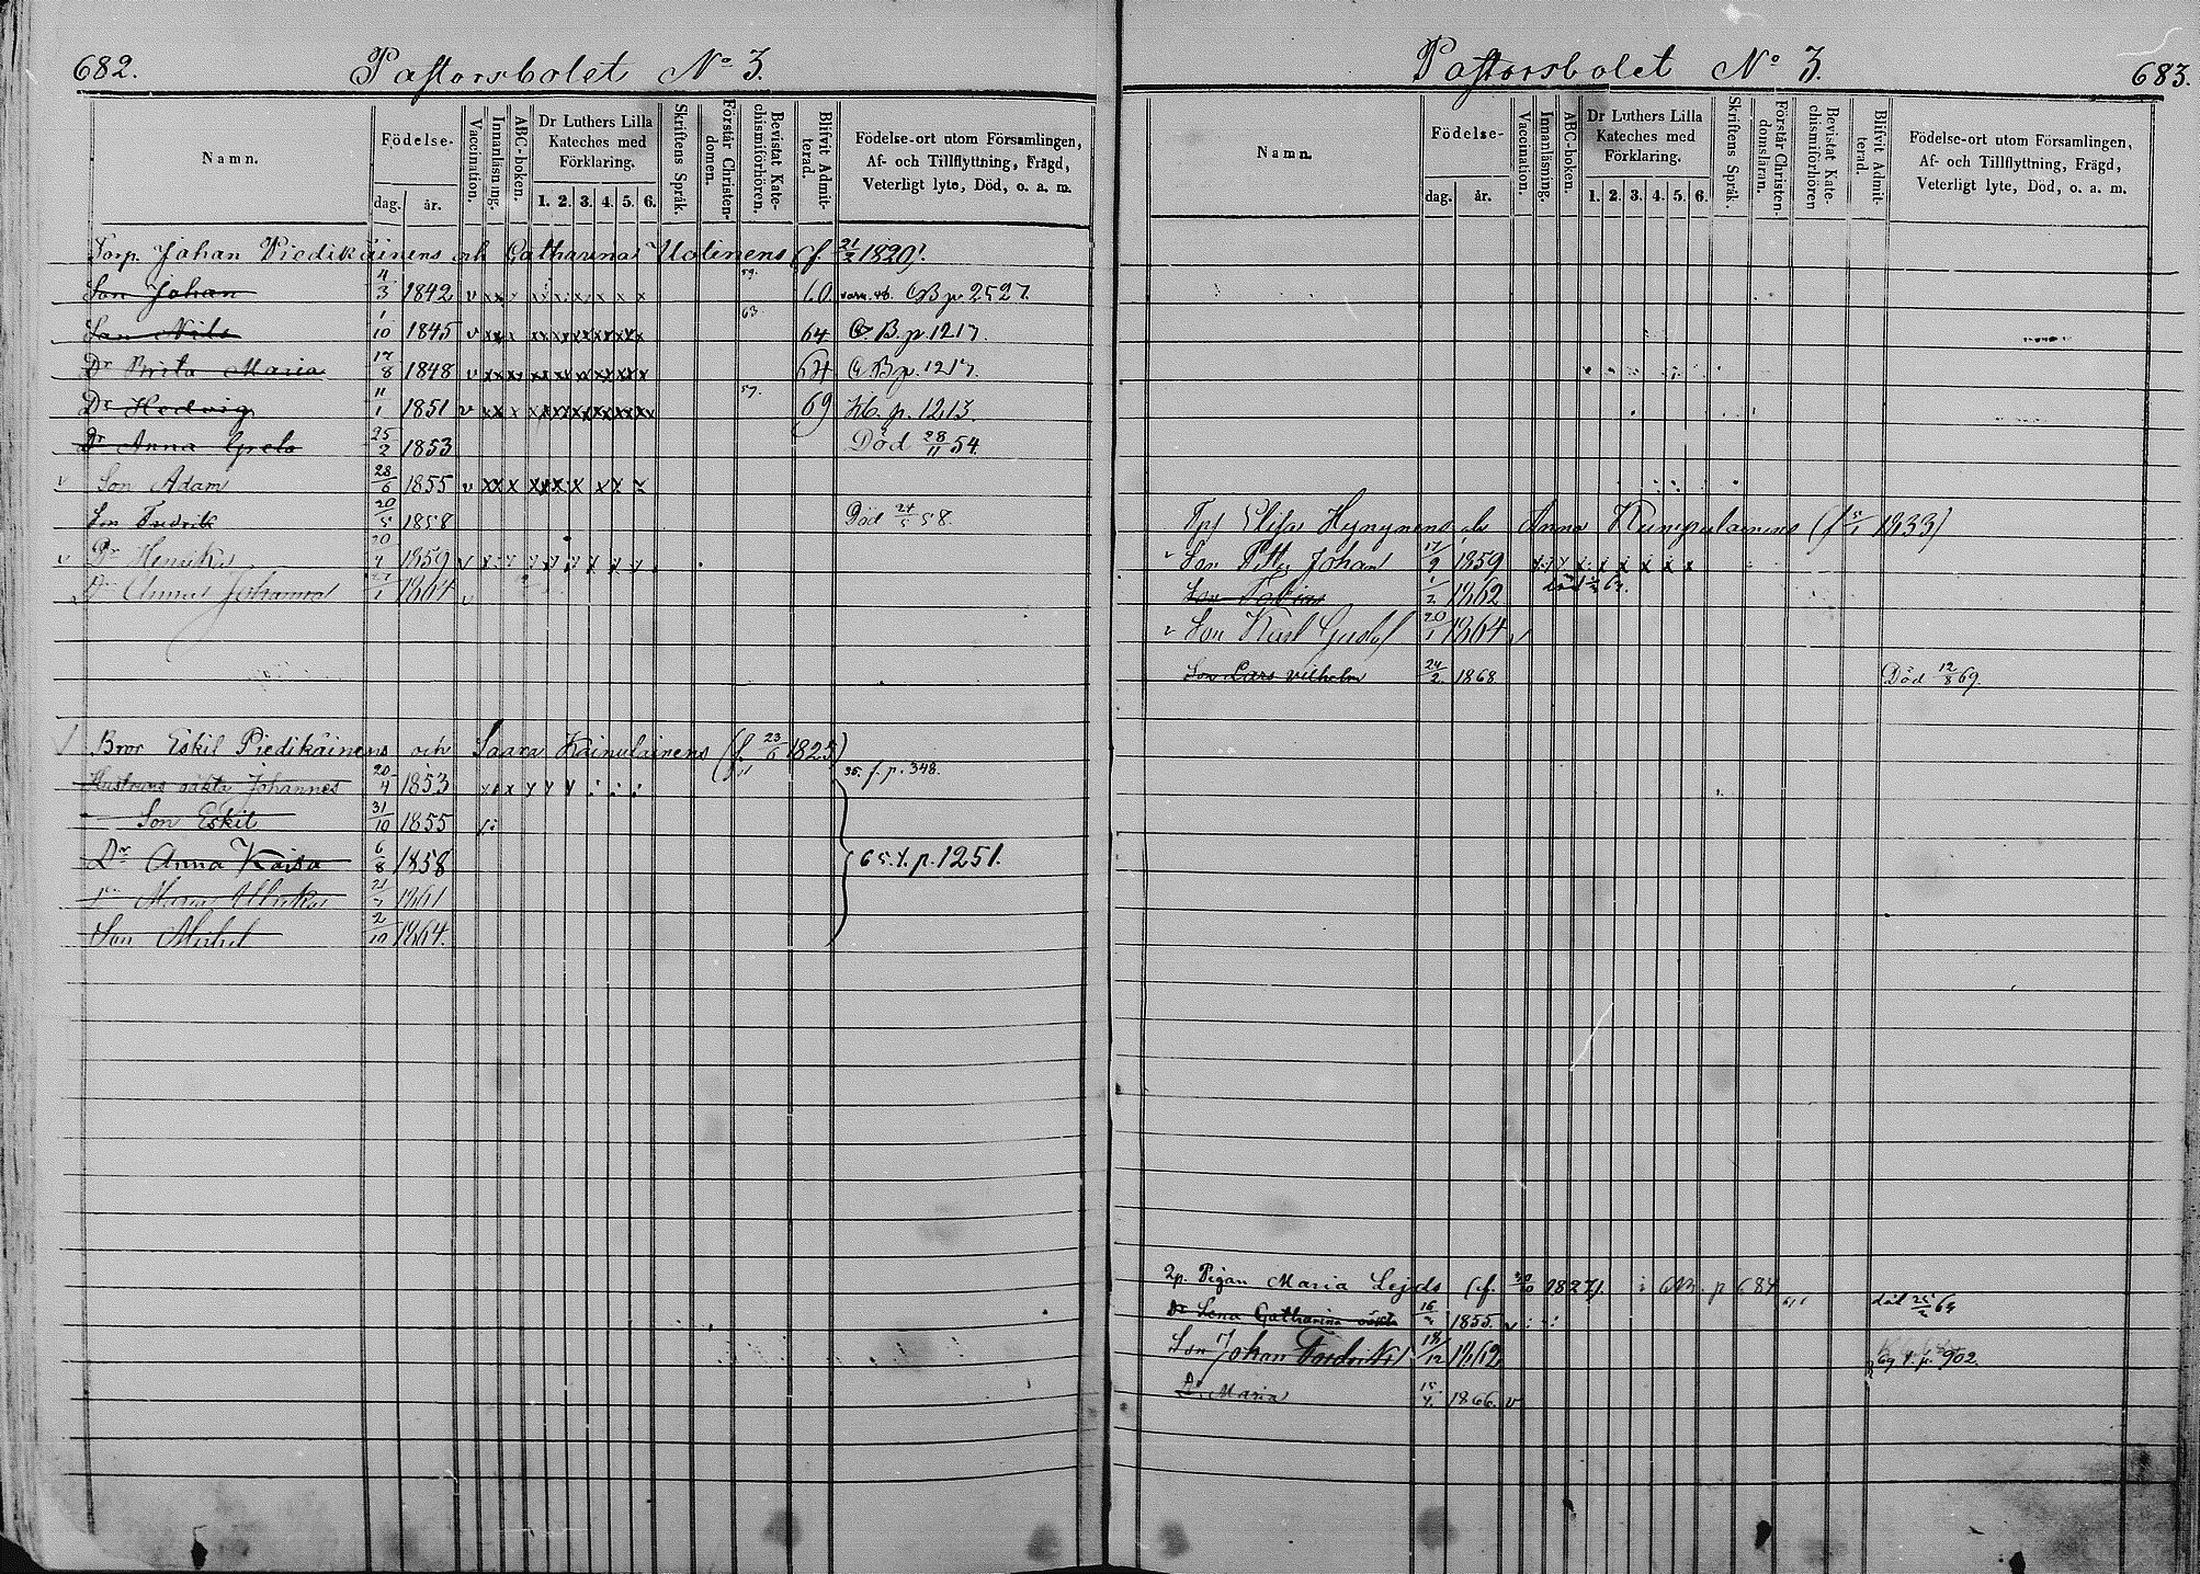 682.
Pastorsbolet No 3.
Namn.
Födelse-
dag.
år.
Vaccination.
Innanläsning.
ABC-boken.
Dr Luthers Lilla
Kateches med
Förklaring.
1. 2. 3. 4. 5. 6.
Skriftens Språk.
Förstår Christen-
domen.
Bevistat Kate-
chismiförhören.
Blifvit Admit-
terad.
Födelse-ort utom Församlingen,
Af- och Tillflyttning, Frägd,
Veterligt lyte, Död, o. a. m.
Torp. Johan Piedikäinens och Catharina Uotinens (f. 21/2 1820).
Son Johan 4/3 1842 v xx x x x x x x x 59. 60 CB p. 2527.
Son Nils 1/10 1845 v xx x xx xx xx xx xx xx 63. 64 C.B. p. 1217.
Dr Brita Maria 17/8 1848 v xx xx xx xx xx xx xx xx 64 C.B p. 1217.
Dr Hedvig 11/1 1851 v xx x xx xx xx xx xx xx 57. 69 Hb. p. 1213.
Dr Anna Greta 25/2 1853 Död 28/11 54.
v Son Adam 28/6 1855 v xx x xx x x x x
Son Fredrik 20/5 1858 Död 24/5 58.
v Dr Henrika 20/4 1859 v
Dr Anna Johanna 1864 v
Bror Eskil Piedikäinens och Saara Kainulainens (f. 23/6 1825)
Hustruns oäkta Johannes 20/4 1853 f. p. 348.
Son Eskil 31/10 1855
Dr Anna Kaisa 6/8 1858 65. f. p. 1251.
Dr Maria Ulrika 1861
Son Mikel 2/10 1864.
Pastorsbolet No 3.
683.
Namn.
Födelse-
dag.
år.
Vaccination.
Innanläsning.
ABC-boken.
Dr Luthers Lilla
Kateches med
Förklaring.
1. 2. 3. 4. 5. 6.
Skriftens Språk.
Förstår Christen-
domsläran.
Bevistat Kate-
chismiförhören
Blifvit Admit-
terad.
Födelse-ort utom Församlingen,
Af- och Tillflyttning, Frägd,
Veterligt lyte, Död, o. a. m.
Hynynens Anna Kumpulainens 1833)
v Son Petter Johan 17/9 1859
Son Tobias 1862 död
v Son Karl Gustaf 20/1 1864 v
Son Lars Vilhelm 24/2 1868 Död 12/8 69.
Pigan Maria Lejds (f. 1827). i CB. p 684
Dr Lena Catharina oäkta 1855. v död
Son Johan Fredrik 18/12 1862 69 f. p. 902.
Dr Maria 15/4 1866. v